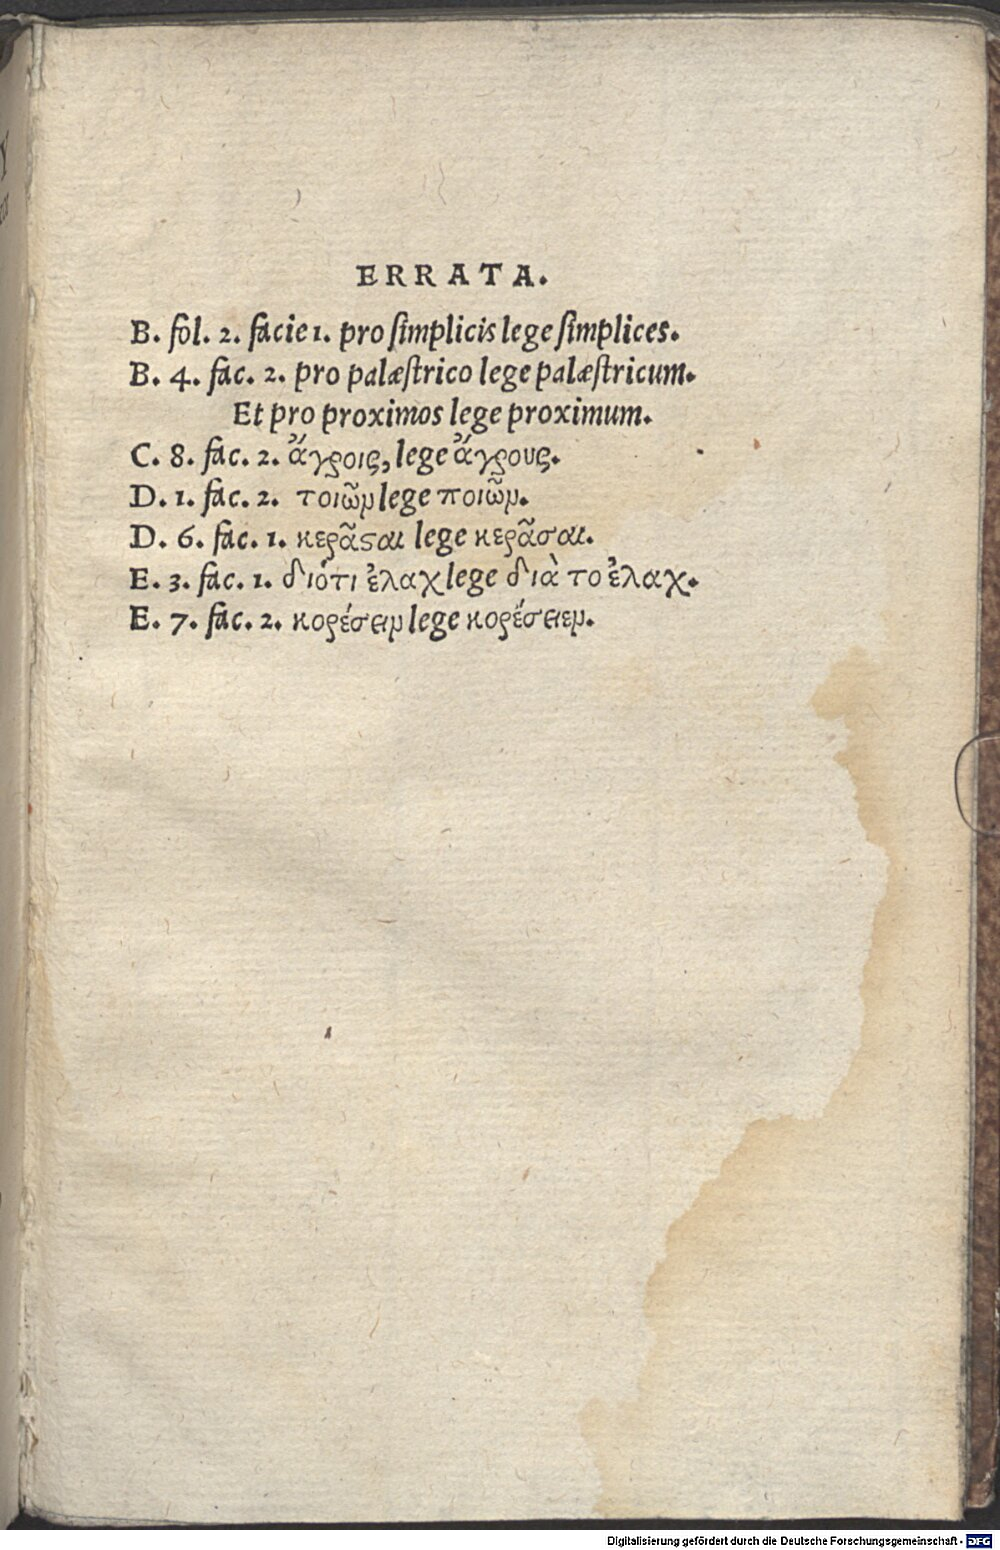 ERRATA.
B. fol. 2. facie 1. pro ſimplicis lege ſimplices.
B. 4. fac. 2. pro palæſtrico lege palæſtricum.
Et pro proximos lege proximum.
C. 8. fac. 2. ἄγροις, lege ἄγρους.
D. 1. fac. 2. τοιῶν lege ποιῶν.
D. 6. fac. 1. κερᾶςαι lege κερᾶσαι.
E. 3. fac. 1. διότι ἐλαχ lege διὰ το ἐλαχ.
E. 7. fac. 2. κορέσειν lege κορέσειεν.
Digitalisierung gefördert durch die Deutsche Forschungsgemeinschaft - DFG